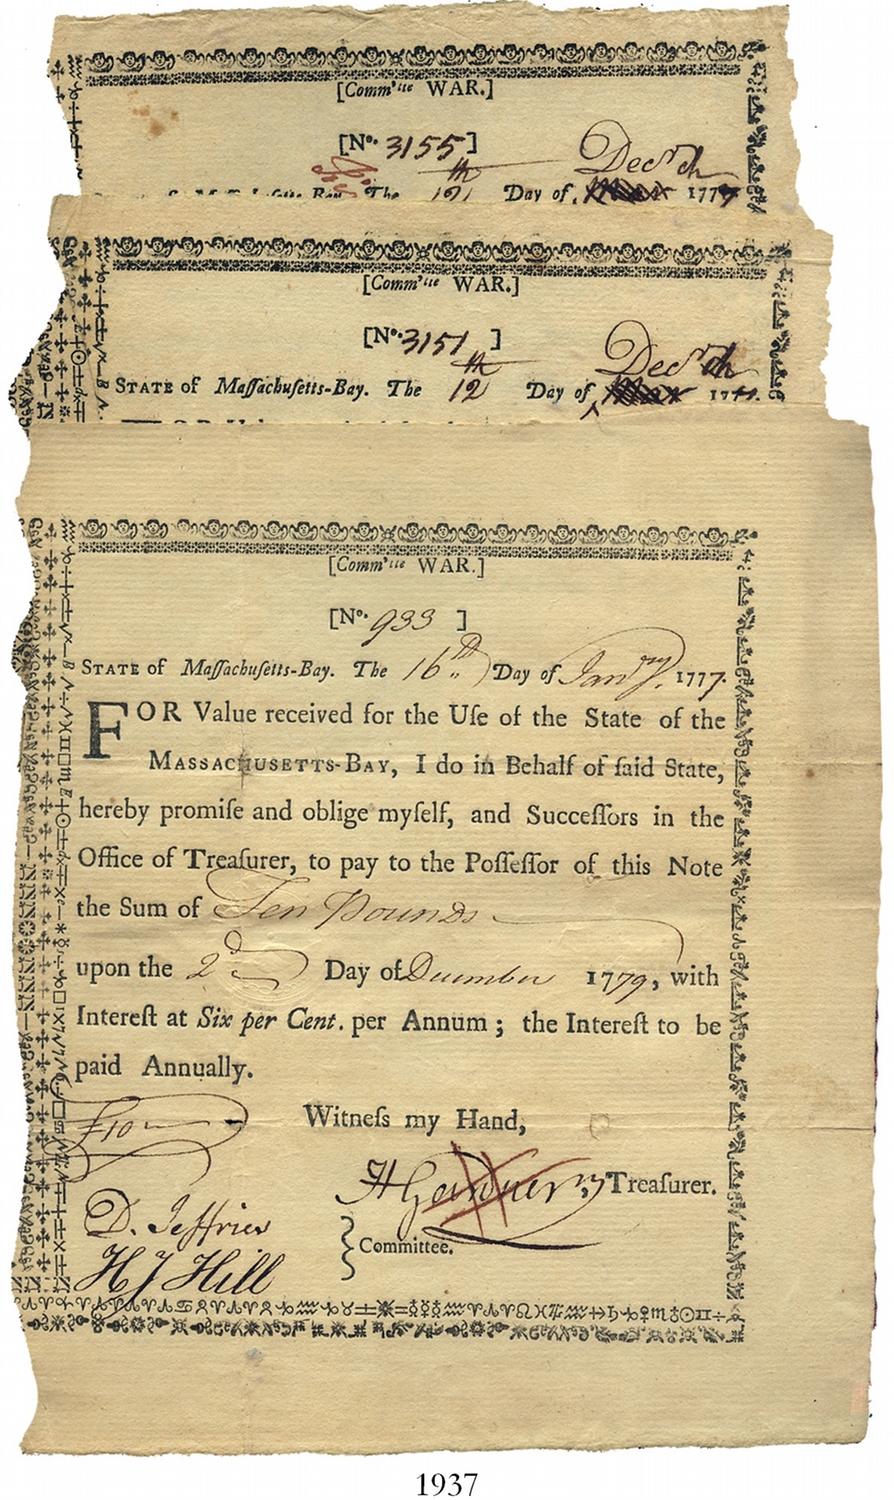 [Comm^tte WAR.]
[No. 3155]
Decr ch
The 12th Day of 1777
[Comm^tte WAR.]
[No. 3151 ]
Decr ch
STATE of Maſſachuſetts-Bay. The 12th Day of 1777.
[Comm^tte WAR.]
[No. 933 ]
STATE of Maſſachuſetts-Bay. The 16th Day of Janry. 1777.
FOR Value received for the Uſe of the State of the
MASSACHUSETTS-BAY, I do in Behalf of ſaid State,
hereby promiſe and oblige myſelf, and Succeſſors in the
Office of Treaſurer, to pay to the Poſſeſſor of this Note
the Sum of Ten Pounds
upon the 2d Day of December 1779, with
Intereſt at Six per Cent. per Annum ; the Intereſt to be
paid Annually.
£10 Witneſs my Hand,
H Gardner Treaſurer.
D. Jeffries
Committee.
H J Hill
1937